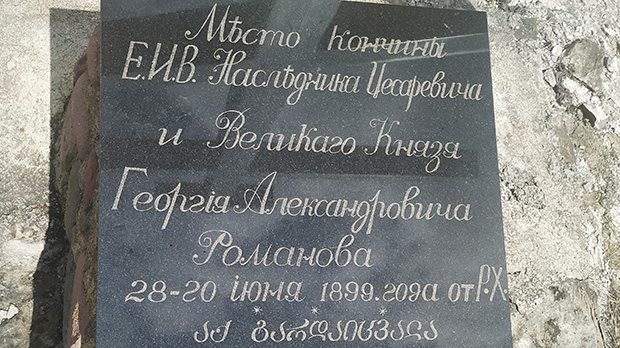 Мѣсто кончины
Е.И.В. Наслѣдника Цесаревича
и Великаго Князя
Георгія Александровича
Романова
28-20 іюня 1899.года от Р.Х.
აქ გარდაიცვალა